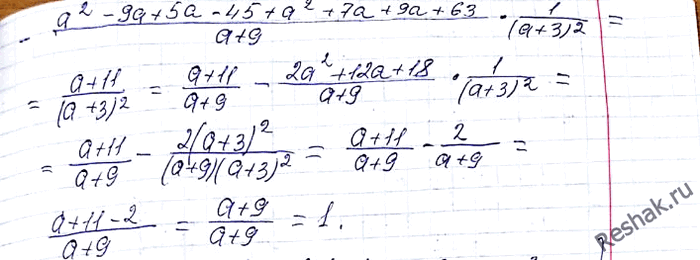 - (a² - 9a + 5a - 45 + a² + 7a + 9a + 63)/(a+9) · 1/(a+3)² =
= (a+11)/(a+3)² = (a+11)/(a+9) - (2a² + 12a + 18)/(a+9) · 1/(a+3)² =
= (a+11)/(a+9) - 2(a+3)²/((a+9)(a+3)²) = (a+11)/(a+9) - 2/(a+9) =
(a+11-2)/(a+9) = (a+9)/(a+9) = 1.
Reshak.ru